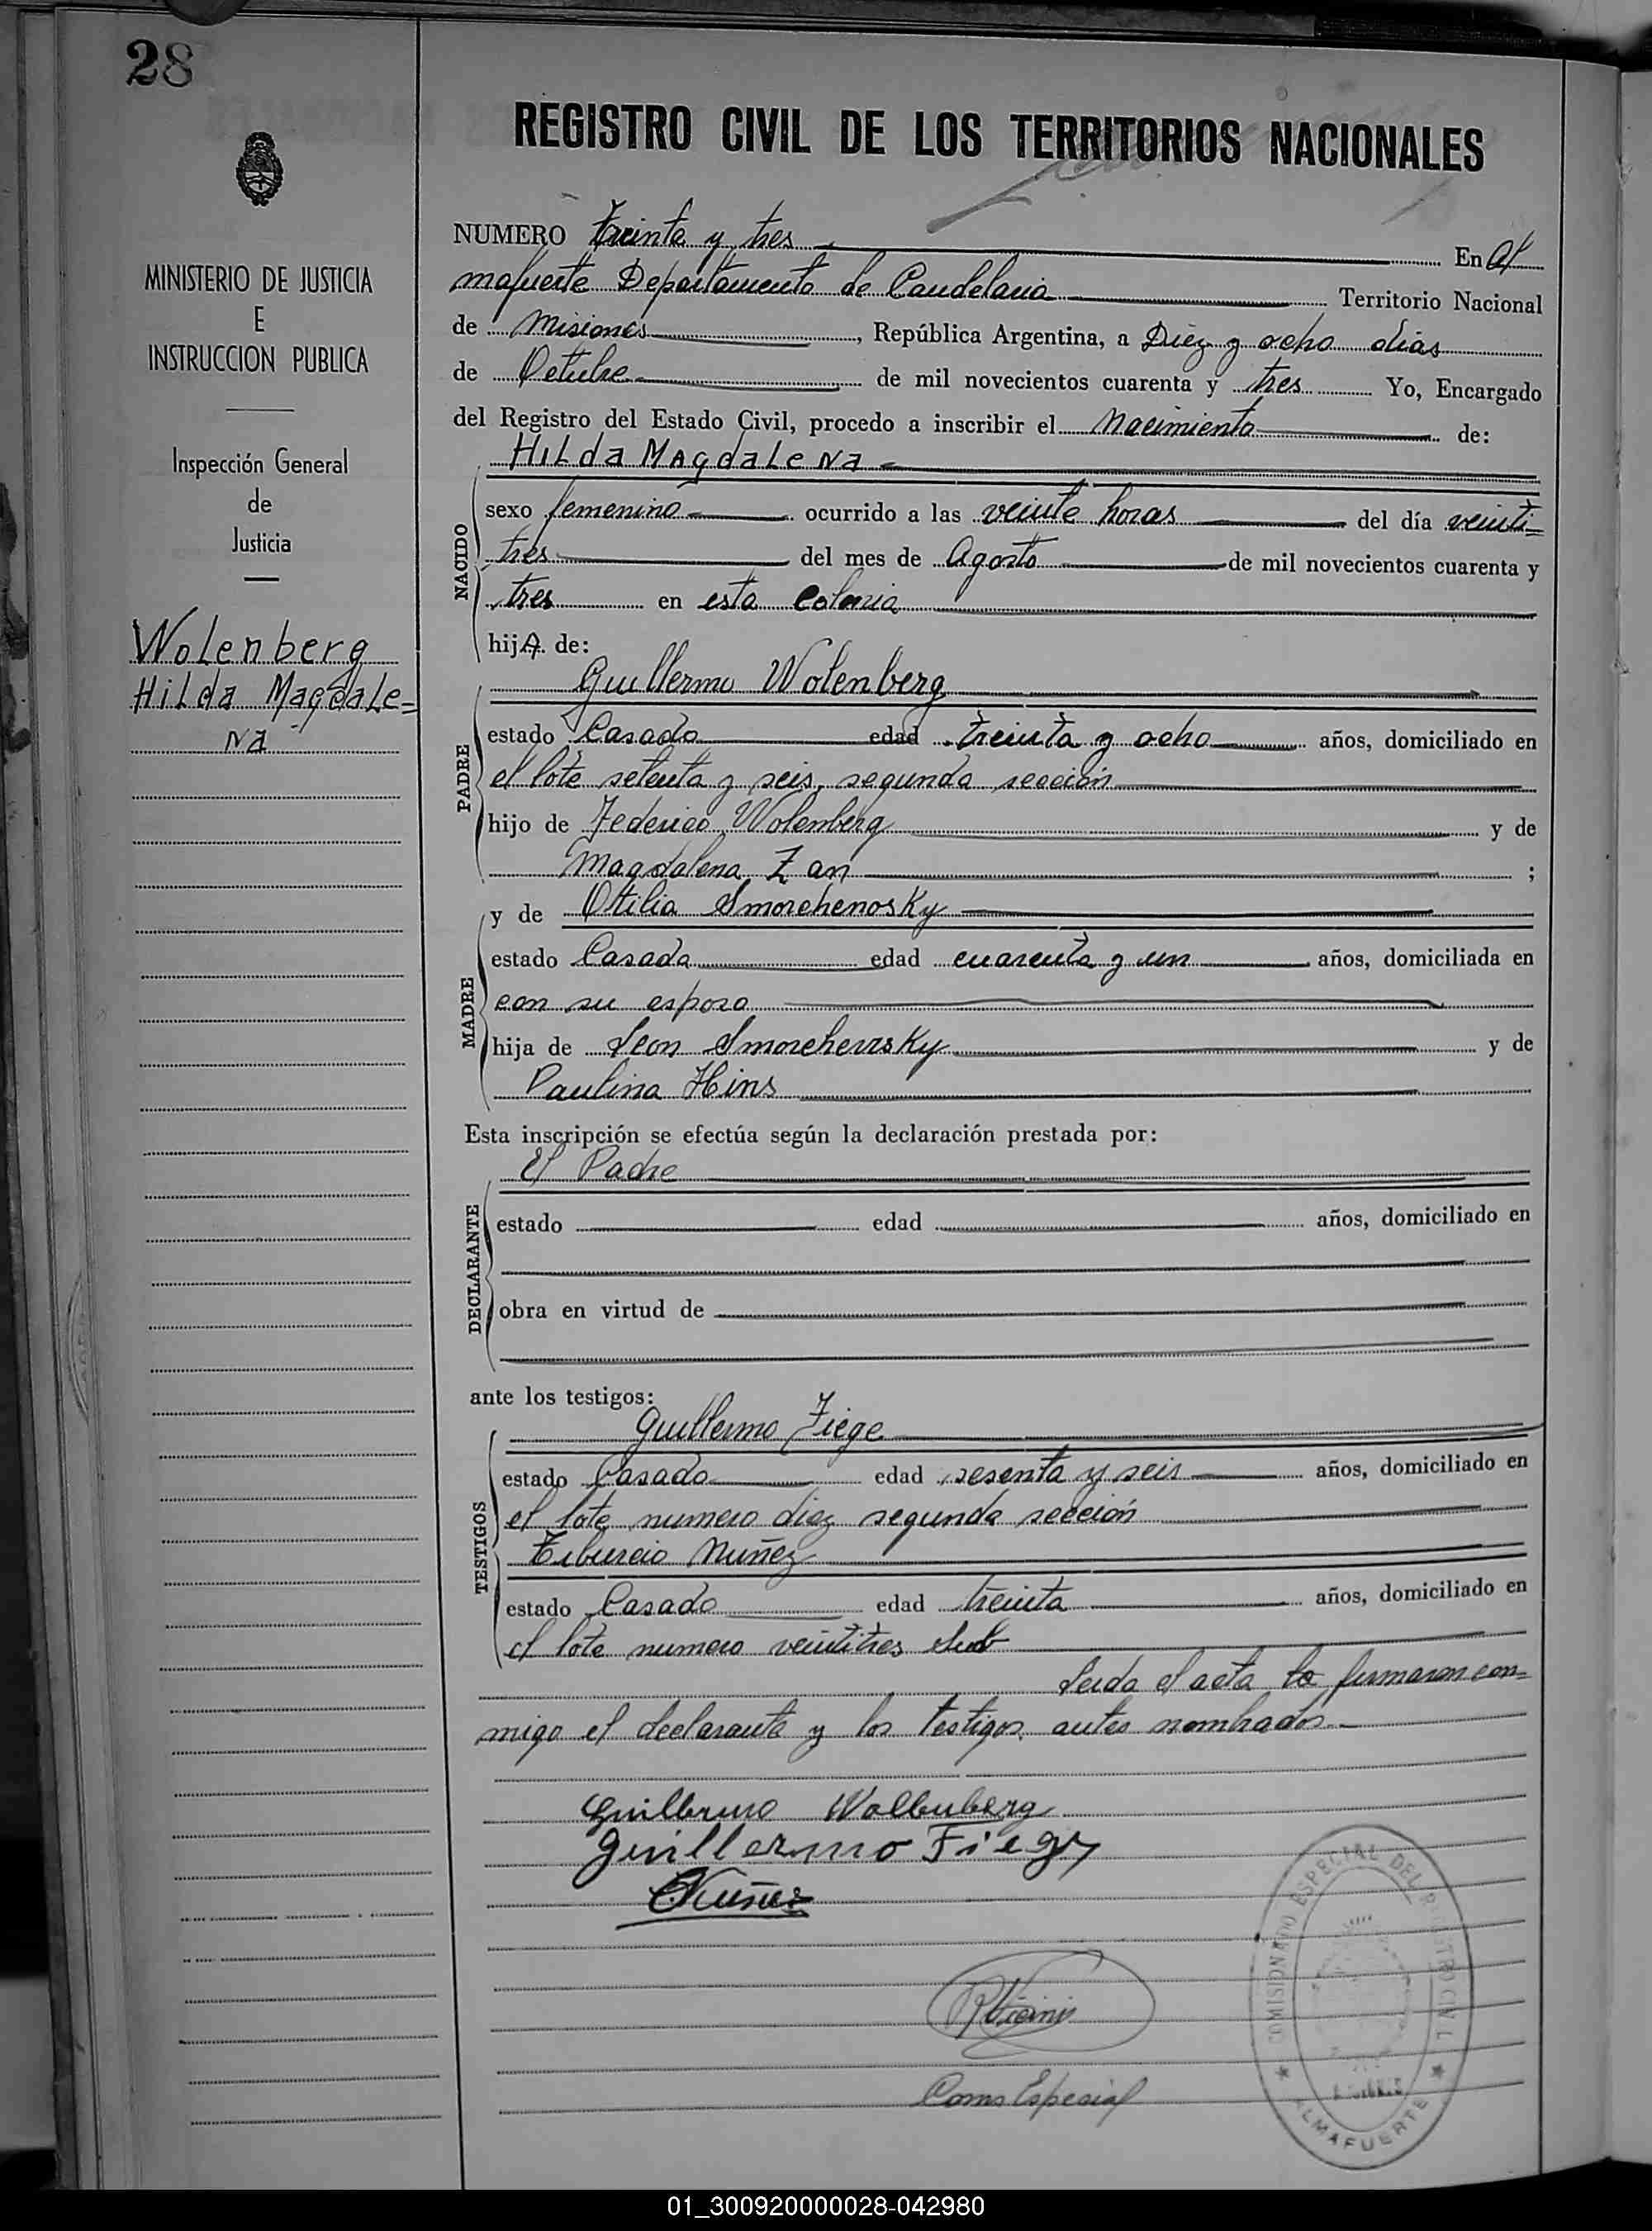 28
REGISTRO CIVIL DE LOS TERRITORIOS NACIONALES
MINISTERIO DE JUSTICIA
E
INSTRUCCION PUBLICA
Inspección General
de
Justicia
Wolenberg
Hilda Magdale=
na
NUMERO treinta y tres En Al
mafuerte Departamento de Candelaria Territorio Nacional
de Misiones, República Argentina, a Diez y ocho dias
de Octubre de mil novecientos cuarenta y tres Yo, Encargado
del Registro del Estado Civil, procedo a inscribir el Nacimiento de:
Hilda Magdalena
NACIDO
sexo femenino ocurrido a las veinte horas del día veinti=
tres del mes de Agosto de mil novecientos cuarenta y
tres en esta Colonia
hijA de:
Guillermo Wolenberg
PADRE
estado Casado edad treinta y ocho años, domiciliado en
el lote setenta y seis, segunda sección
hijo de Federico Wolenberg y de
Magdalena Zan ;
y de Otilia Smorchenosky
MADRE
estado Casada edad cuarenta y un años, domiciliada en
con su esposo
hija de Leon Smorchenosky y de
Paulina Hins
Esta inscripción se efectúa según la declaración prestada por:
El Padre
DECLARANTE
estado edad años, domiciliado en
obra en virtud de
ante los testigos:
Guillermo Fiege
TESTIGOS
estado Casado edad sesenta y seis años, domiciliado en
el lote numero diez segunda sección
Tiburcio Nuñez
estado Casado edad treinta años, domiciliado en
el lote numero veintitres Sub
Leida el acta la firmaron con=
migo el declarante y los testigos antes nombrados.
Guillermo Wollenberg
Guillermo Fiege
Nuñez
Coms Especial
COMISIONADO ESPECIAL DEL REGISTRO CIVIL
ALMAFUERTE
01_300920000028-042980